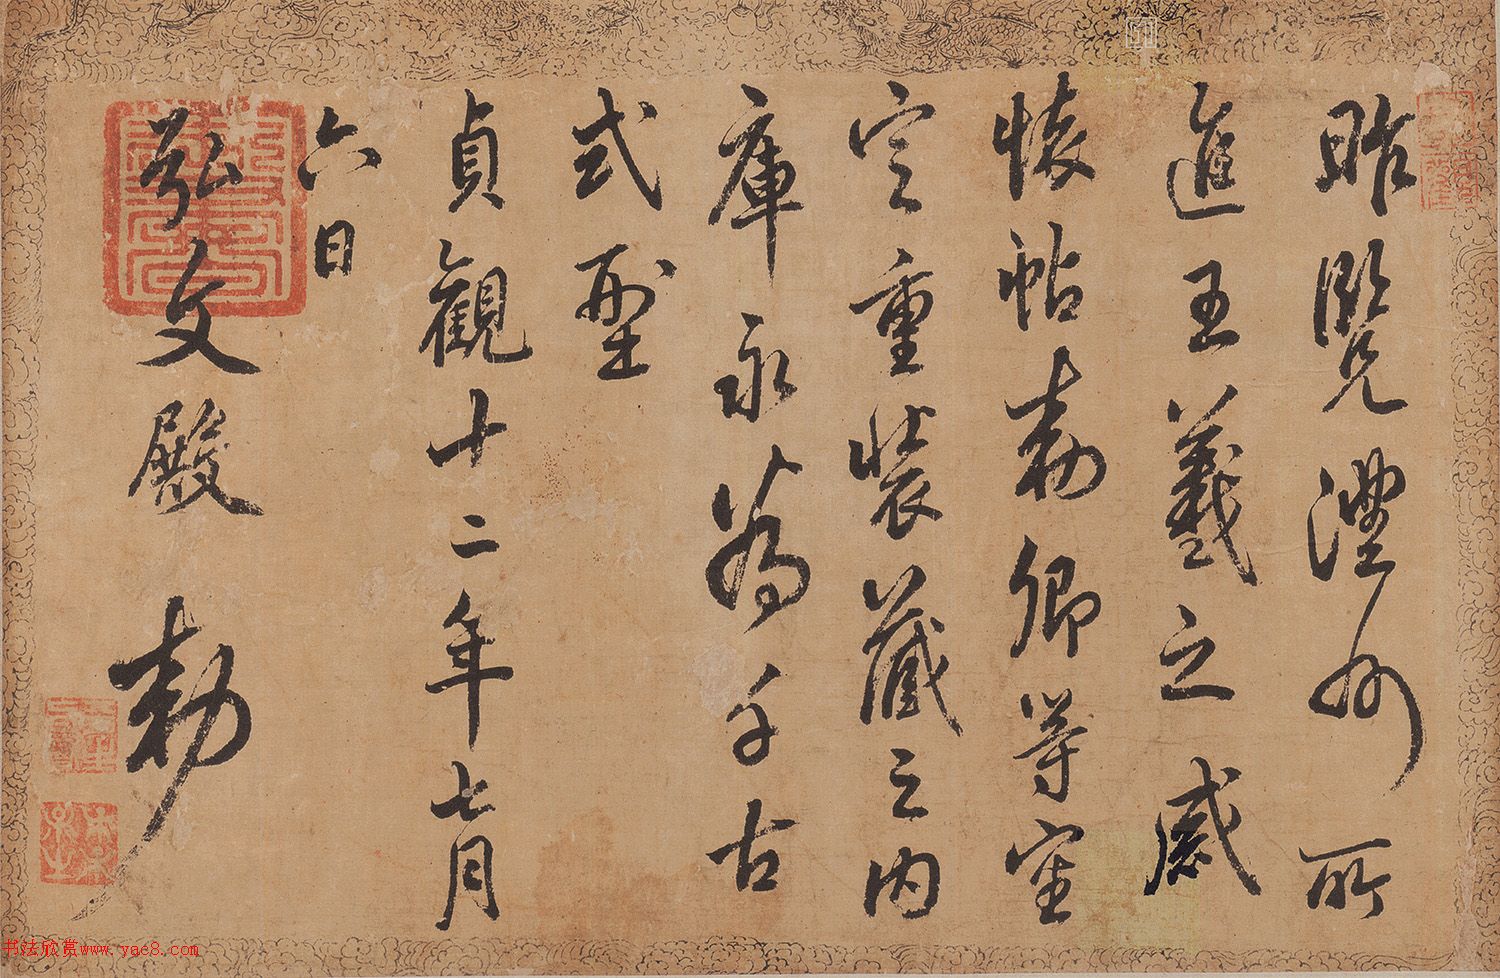 昨覽澧州所
進王羲之感
懷帖敕卿等室
定重裝藏之内
庫永為千古
式型
貞觀十二年七月
六日
弘文殿 敕
书法欣赏www.yac8.com